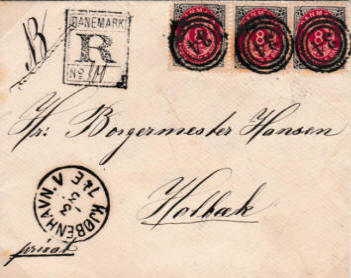 R
DANEMARK
R
No
8 8 8
Hr. Borgermester Hansen
Holbæk
KJØBENHAVN. V
privat